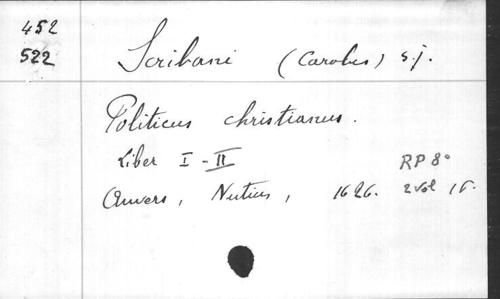 452
522
Scribani (Carolus) s.j.
Politicus christianus.
Liber I - II
Anvers, Nutius, 1626.
RP 8°
2 vol